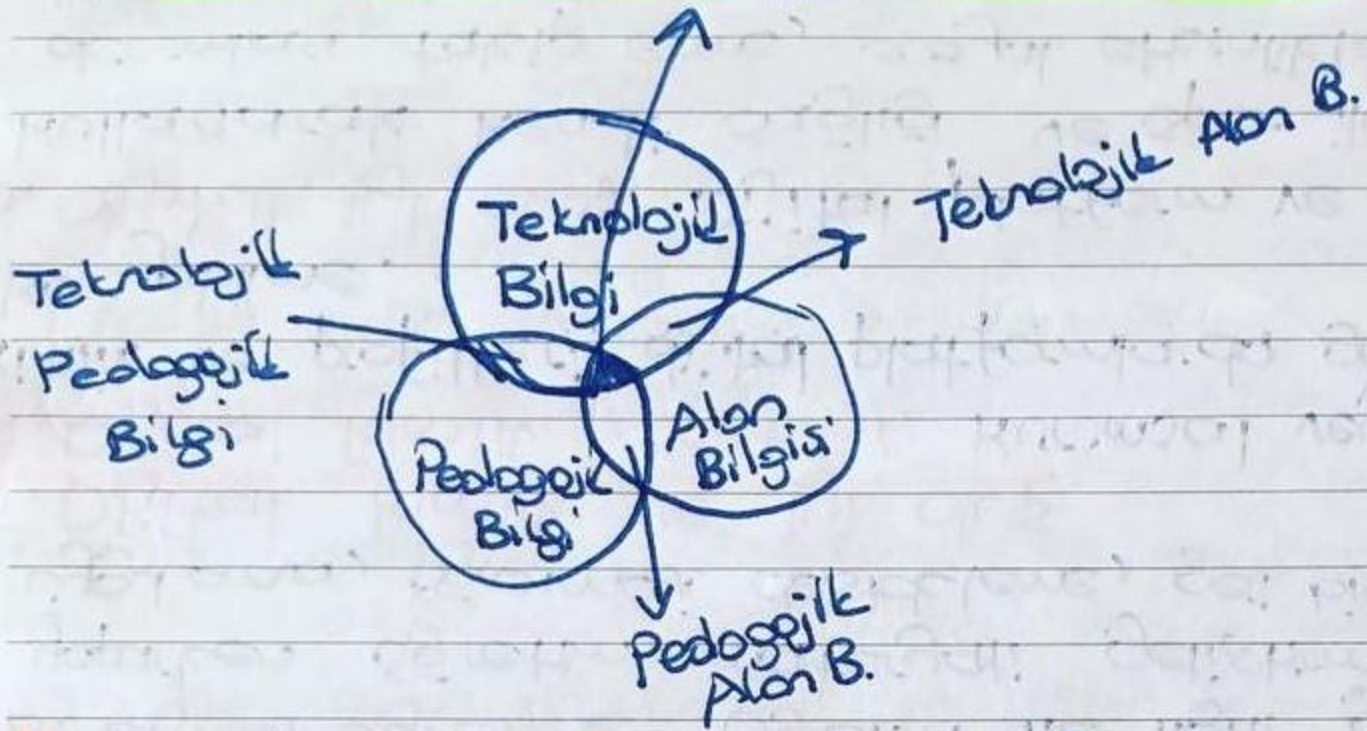 Teknolojik Alan B.
Teknolojik
Bilgi
Teknolojik
Pedagojik
Bilgi
Alan
Bilgisi
Pedagojik
Bilgi
Pedagojik
Alan B.